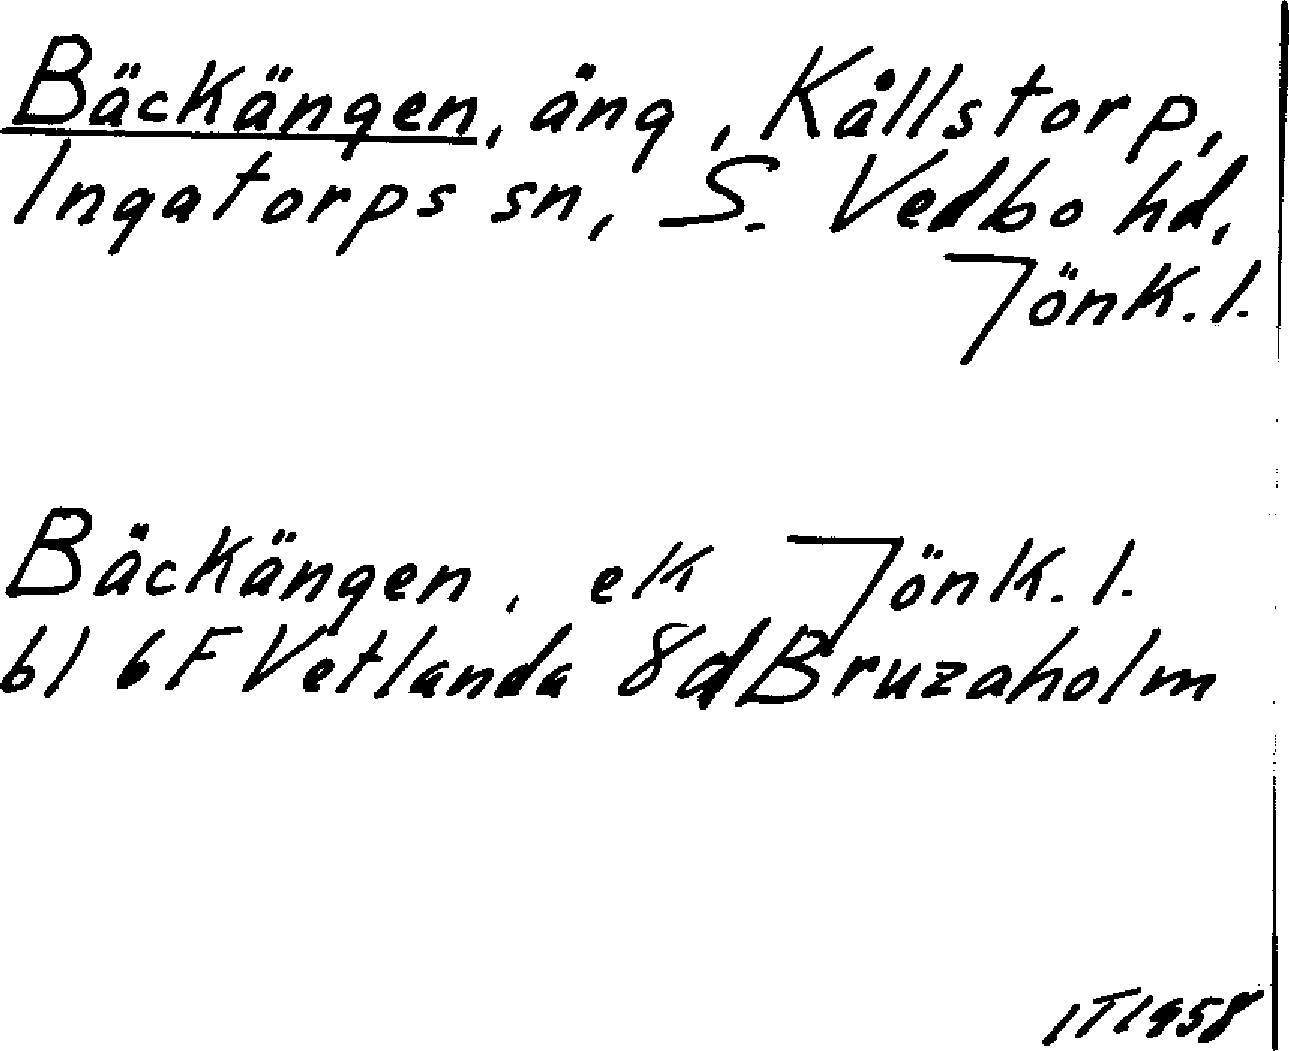 Bäckängen, äng, Kållstorp,
Ingatorps sn, S. Vedbo hd,
Jönk. l.
Bäckängen, ek Jönk. l.
bl 6F Vetlanda 8d Bruzaholm
IT 1958